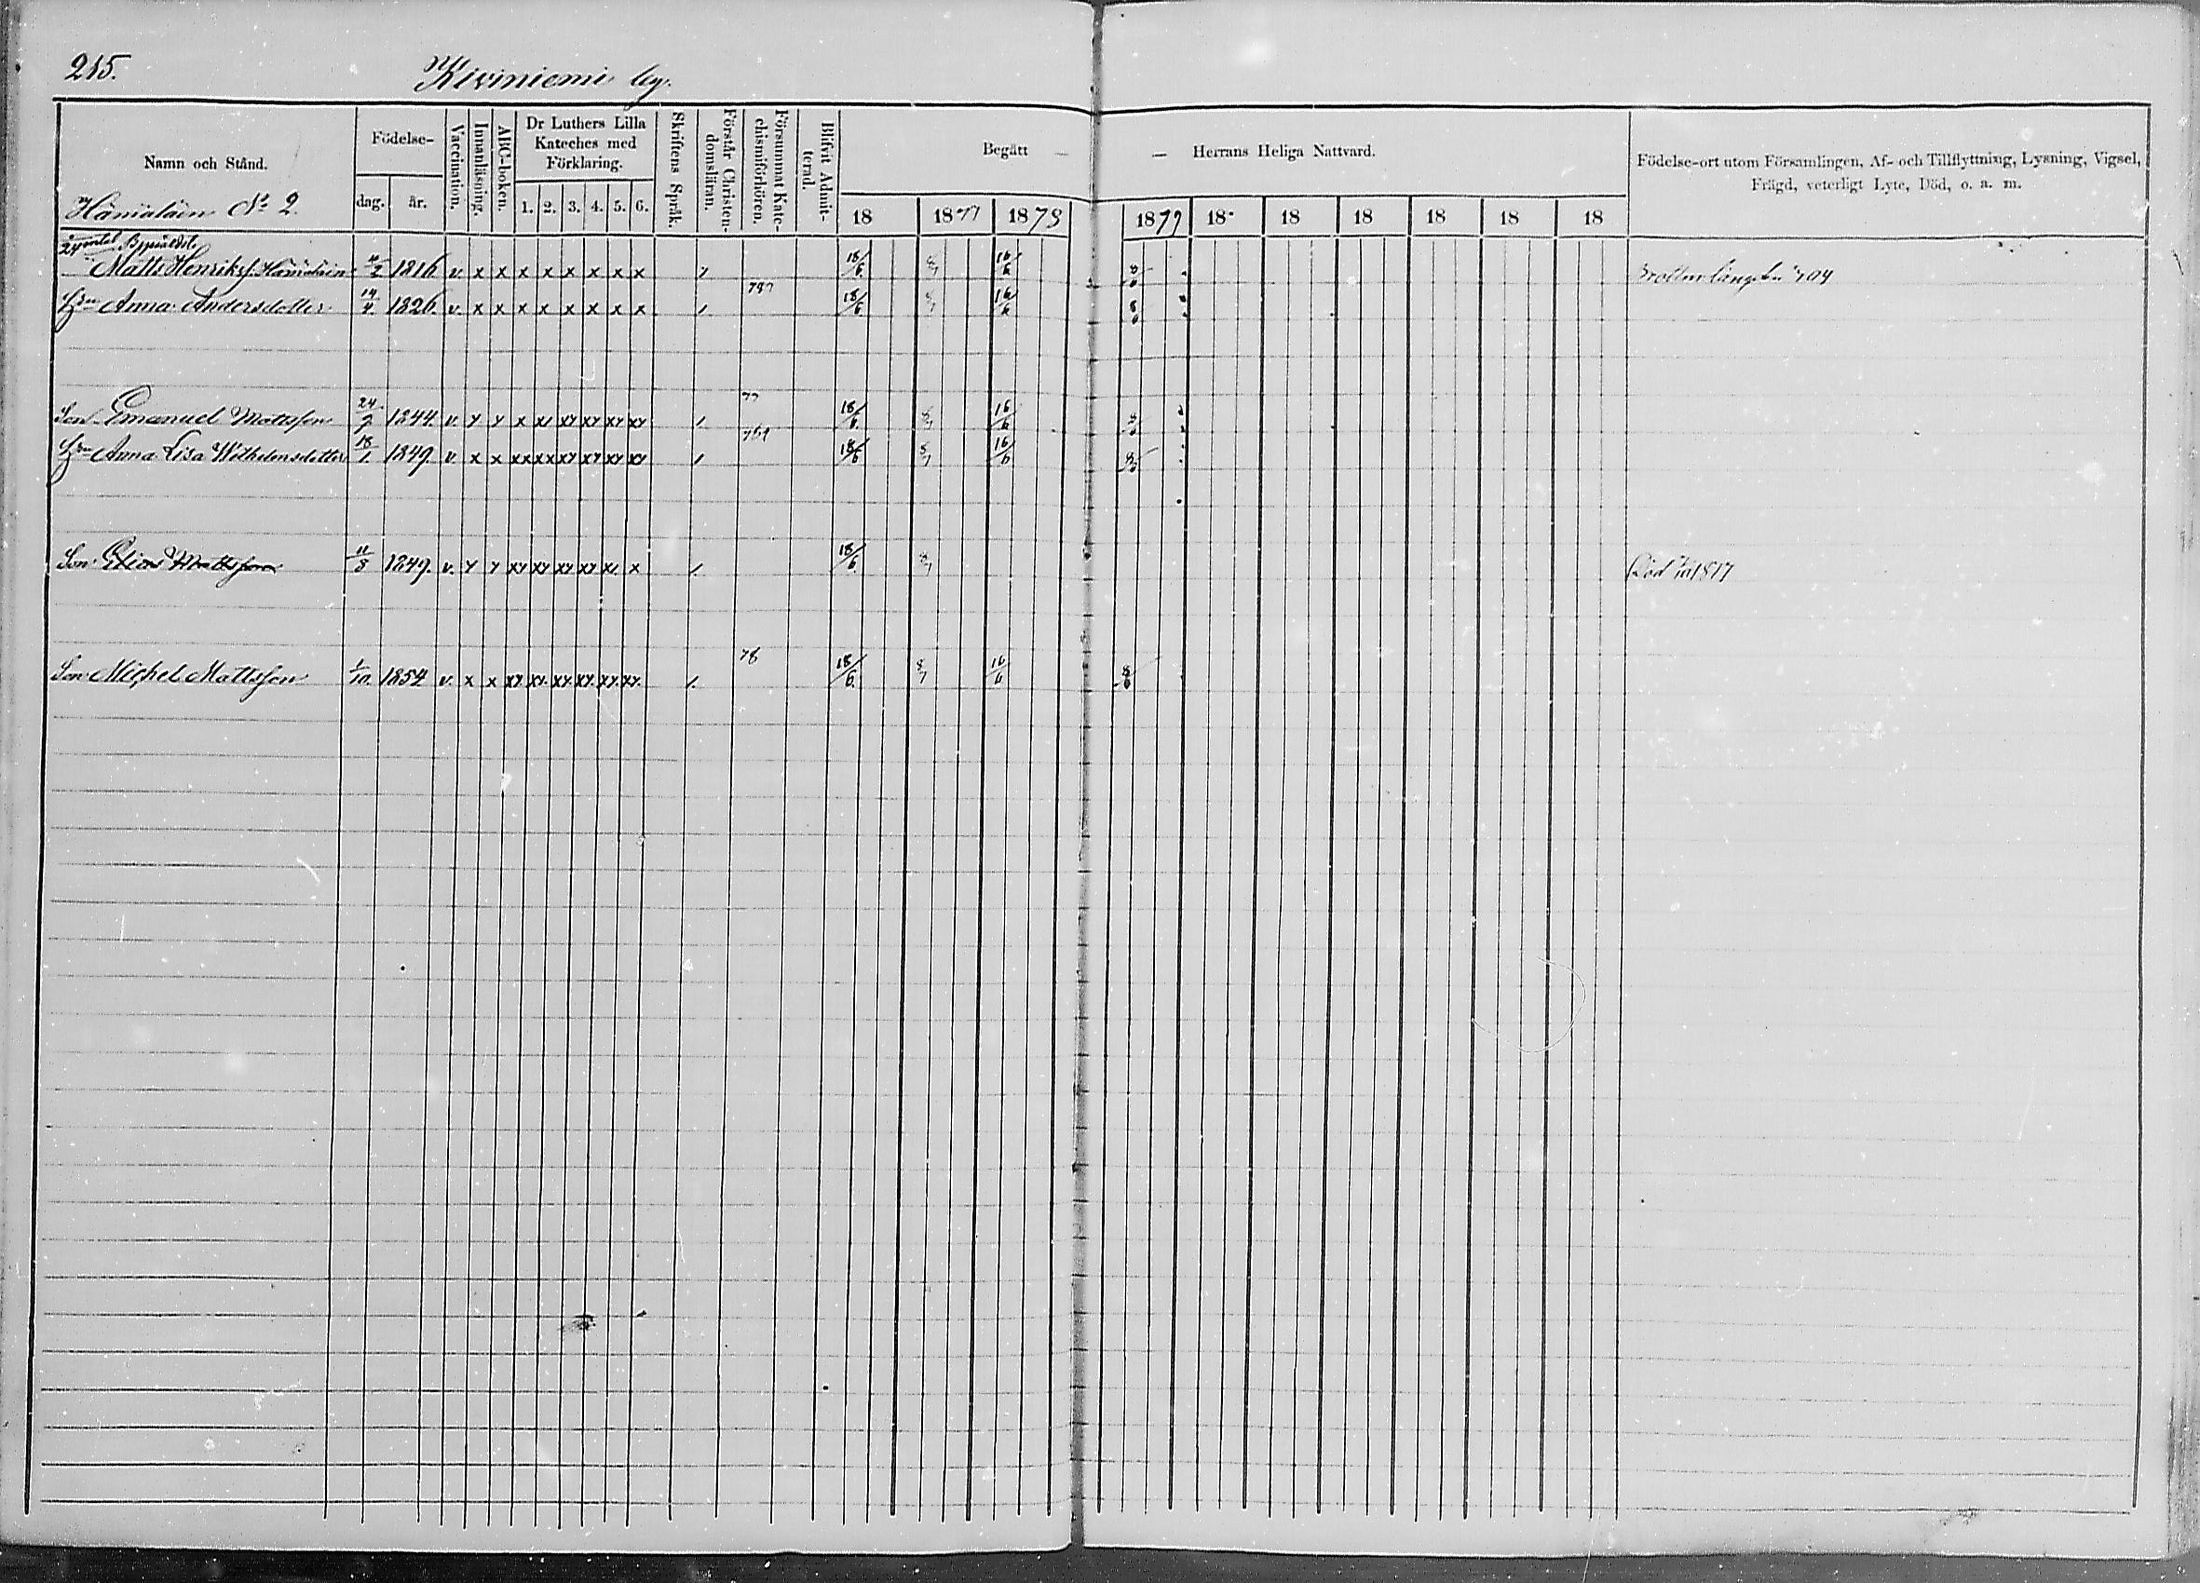 215. Kiviniemi by.
Namn och Stånd.
Födelse-
dag. år.
Vaccination.
Innanläsning.
ABC-boken.
Dr Luthers Lilla Kateches med Förklaring.
1. 2. 3. 4. 5. 6.
Skriftens Språk.
Förstår Christendomsläran.
Försummat Katechismiförhören.
Blifvit Admitterad.
Begått — — Herrans Heliga Nattvard.
18 1877 1878 1879 18 18 18 18 18 18
Födelse-ort utom Församlingen, Af- och Tillflyttning, Lysning, Vigsel,
Frägd, veterligt Lyte, Död, o. a. m.
Hänialäin No 2.
Matts Henrikss. Hänialäin 1816 v. x x x x x x x x 18/6. 8/7 16/6
Hu Anna Andersdotter 14/4. 1826. v. x x x x x x x x 18/6. 8/7 16/6
77
Son Emanuel Mattsson 24/9. 1844. v. y y x xy xy xy xy xy 18/6. 8/7 16/6
Hu Anna Lisa Wilhelmsdotter 18/1. 1849. v. x x xx xx xy xy xy xy 18/6 8/7 16/6
Son Elias Mattsson 11/8 1849. v. y y xy xy xy xy xy. x 18/6. 8/7 Död
78
Son Michel Mattsson 1/10. 1854 v. x x xy xy. xy. xy. xy. xy. 18/6. 8/7 16/6 8/6